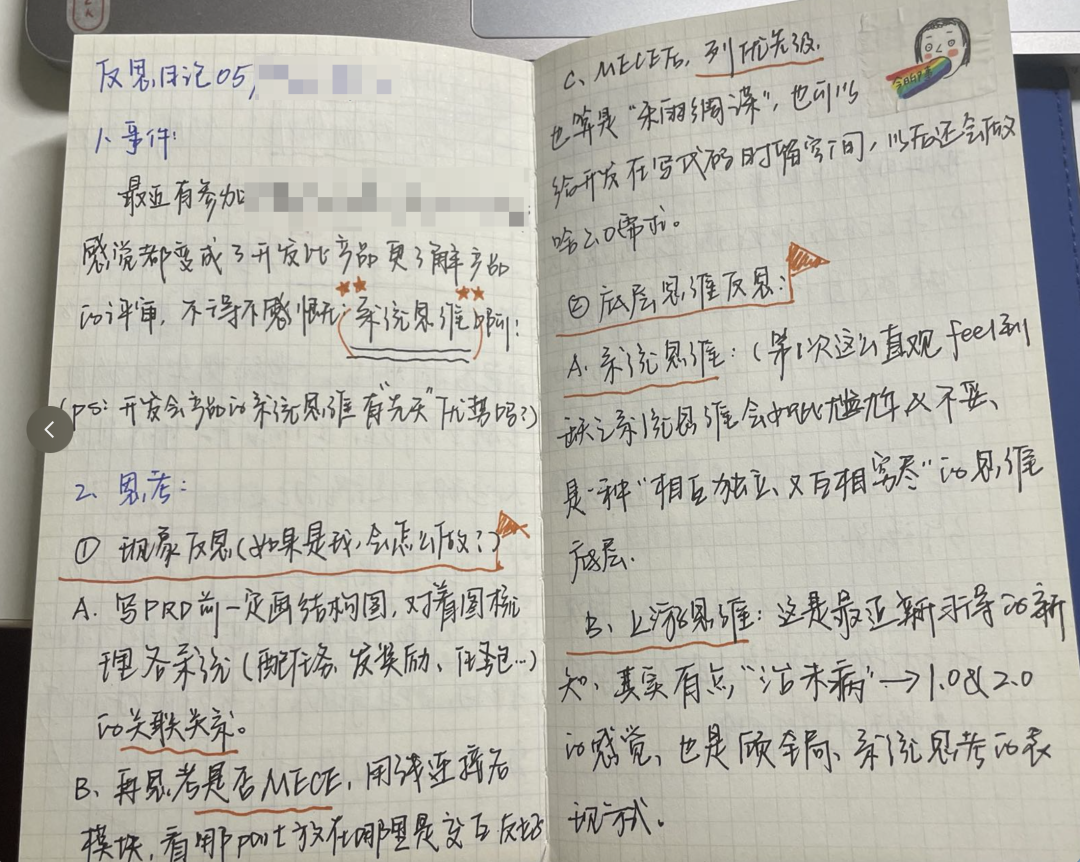 反思日记05,
1、事件:
最近有参加
感觉都变成了开发比产品更了解产品
的评审,不得不感慨:系统思维啊!
(ps:开发会产品的系统思维有“先天”优势吗?)
2、思考:
① 现象反思(如果是我,会怎么做?)
A. 写PRD前一定画结构图,对着图梳
理各系统(配任务、发奖励、任务包…)
的关联关系。
B、再思考是否MECE,用线连接各
模块,看哪part放在哪里是交互友好
C、MECE后,列优先级.
也算是“未雨绸谋”,也可以
给开发在写代码时留空间,以后还会做
啥2.0需求。
② 底层思维反思:
A. 系统思维:(第1次这么直观feel到
缺乏系统思维会如此尴尬&不妥、
是一种“相互独立、又互相穷尽”的思维
底层.
B、上游思维:这是最近新习得的新
知、真实有点“治未病”→1.0&2.0
的感觉、也是顾全局、系统思考的表
现方式.